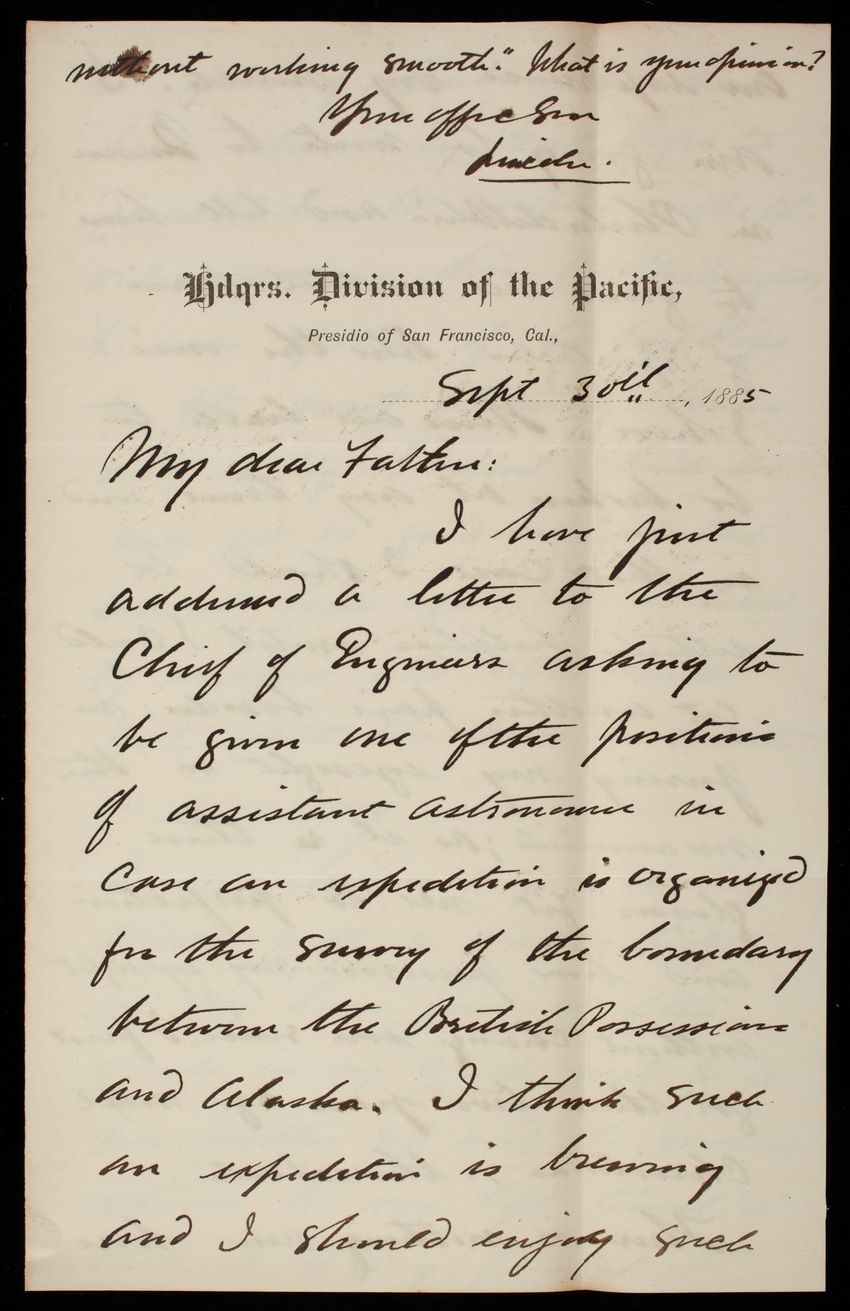 without working smooth." What is your opinion?
Your affec Son
Lincoln.
Hdqrs. Division of the Pacific,
Presidio of San Francisco, Cal.,
Sept 30th, 1885
My dear Father:
I have just
addressed a letter to the
Chief of Engineers asking to
be given one of the positions
of assistant astronomer in
case an expedition is organized
for the survey of the boundary
between the British Possessions
and Alaska. I think such
an expedition is brewing
and I should enjoy such